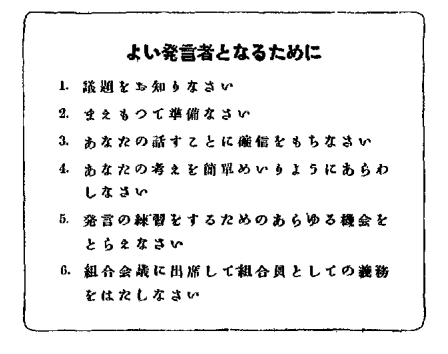 よい発言者となるために
1. 議題をお知りなさい
2. まえもつて準備なさい
3. あなたの話すことに確信をもちなさい
4. あなたの考えを簡単めいりようにあらわ
しなさい
5. 発言の練習をするためのあらゆる機会を
とらえなさい
6. 組合会議に出席して組合員としての義務
をはたしなさい